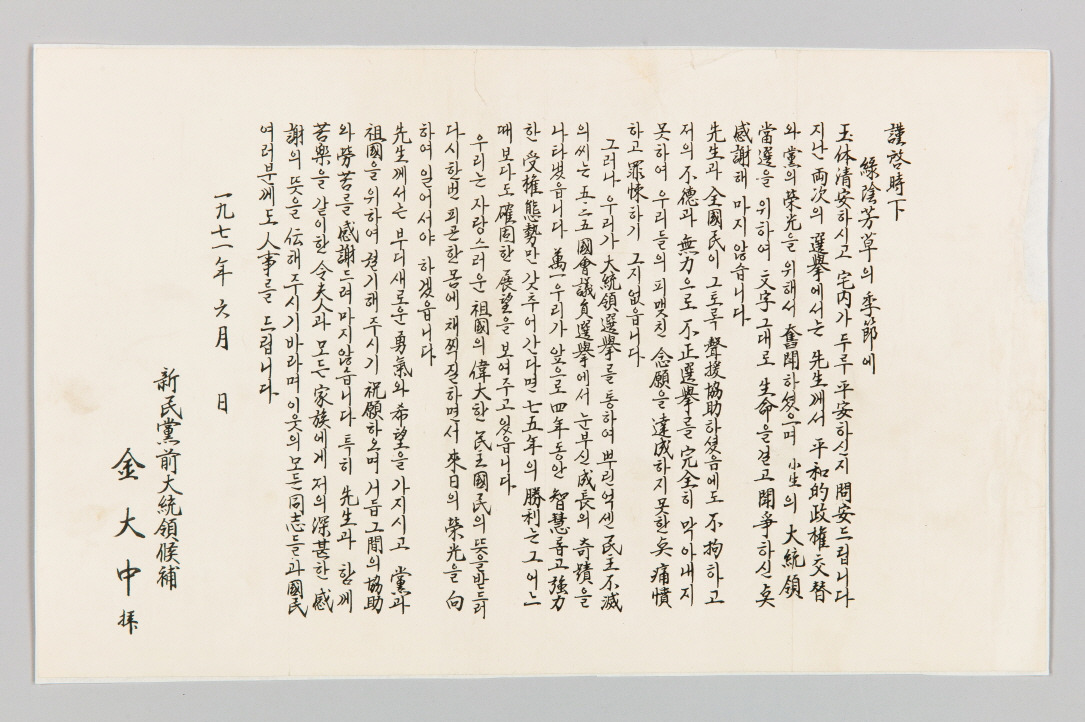 謹啓時下
綠陰芳草의 季節에
玉体淸安하시고 宅內가 두루 平安하신지 問安드립니다
지난 両次의 選擧에서는 先生께서 平和的政權交替
와 黨의 榮光을 위해서 奮闘하셨으며 小生의 大統領
當選을 위하여 文字 그대로 生命을 걸고 闘爭하신 点
感謝해 마지 않습니다
先生과 全國民이 그토록 聲援協助하셨음에도 不拘하고
저의 不德과 無力으로 不正選擧를 完全히 막아내지
못하여 우리들의 피맺친 念願을 達成하지 못한 点 痛憤
하고 罪悚하기 그지없읍니다
그러나 우리가 大統領選擧를 통하여 뿌린 억센 民主不滅
의 씨는 五·二五 國會議員選擧에서 눈부신 成長의 奇蹟을
나타냈읍니다 萬一 우리가 앞으로 四年동안 智慧롭고 強力
한 受權態勢만 갖추어 간다면 七五年의 勝利는 그 어느
때 보다도 確固한 展望을 보여주고 있읍니다
우리는 자랑스러운 祖國의 偉大한 民主國民의 뜻을 받들어
다시한번 피곤한 몸에 채찍질하면서 來日의 榮光을 向
하여 일어서야 하겠읍니다
先生께서는 부디 새로운 勇氣와 希望을 가지시고 黨과
祖國을 위하여 헌기해 주시기 祝願하오며 거듭 그間의 協助
와 勞苦를 感謝드려 마지않습니다 특히 先生과 함께
苦樂을 같이한 令夫人과 모든 家族에게 저의 深甚한 感
謝의 뜻을 伝해 주시기 바라며 이웃의 모든 同志들과 國民
여러분께도 人事를 드립니다
一九七一年 六月 日
新民黨前大統領候補
金大中 拜